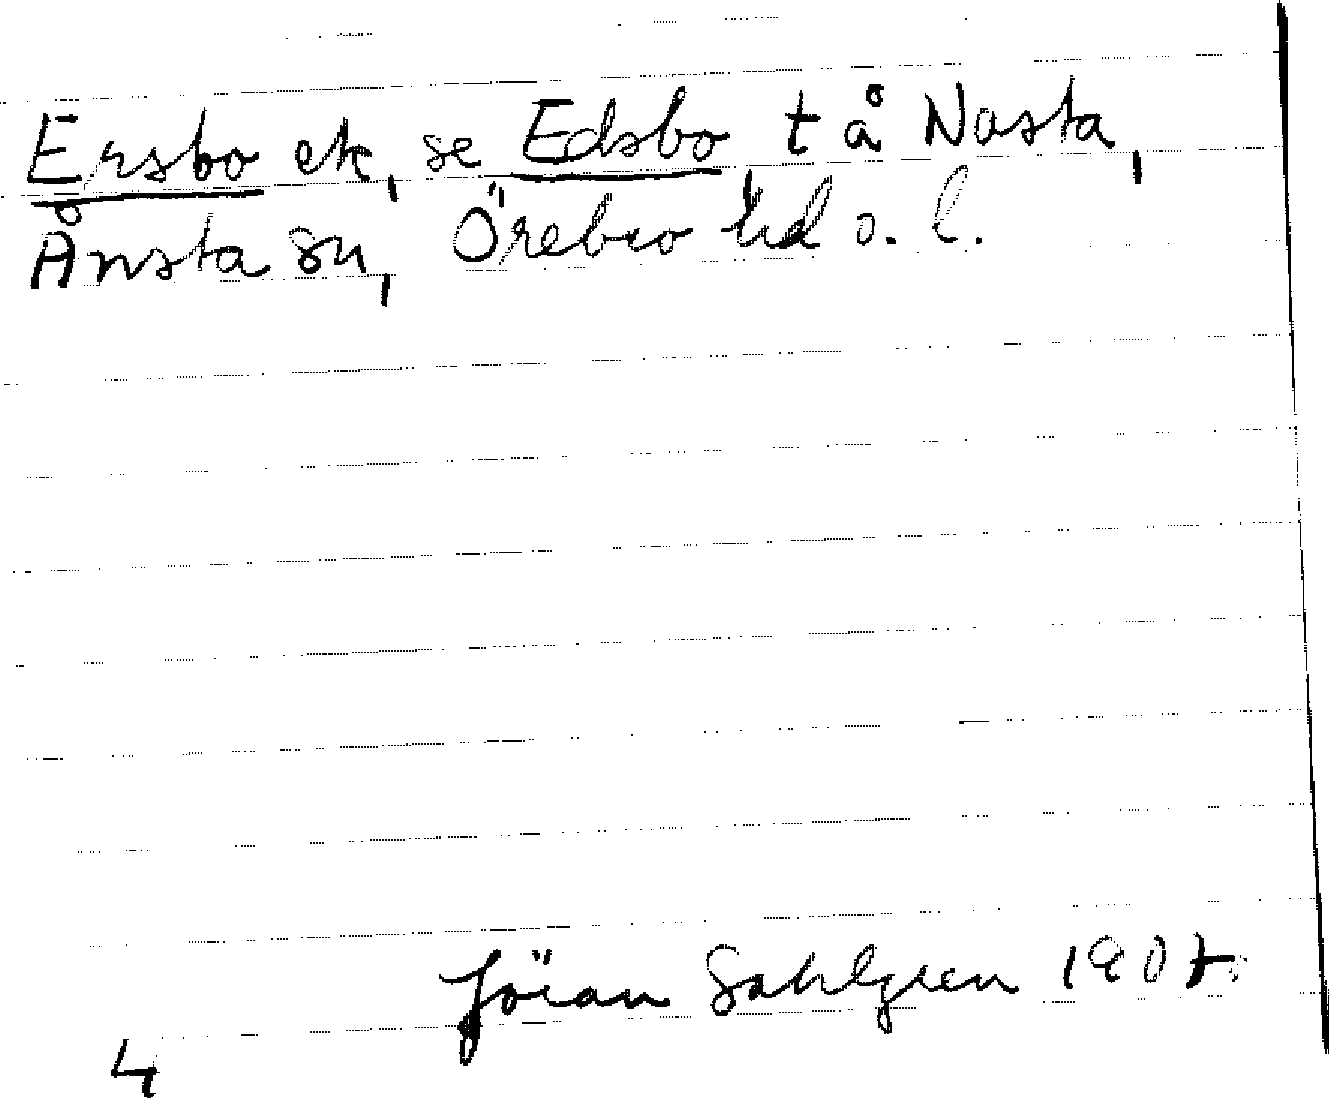 Ersbo ek, se Edsbo t å Nasta,
Ånsta sn, Örebro hd o. l.
Jöran Sahlgren 1907.
4